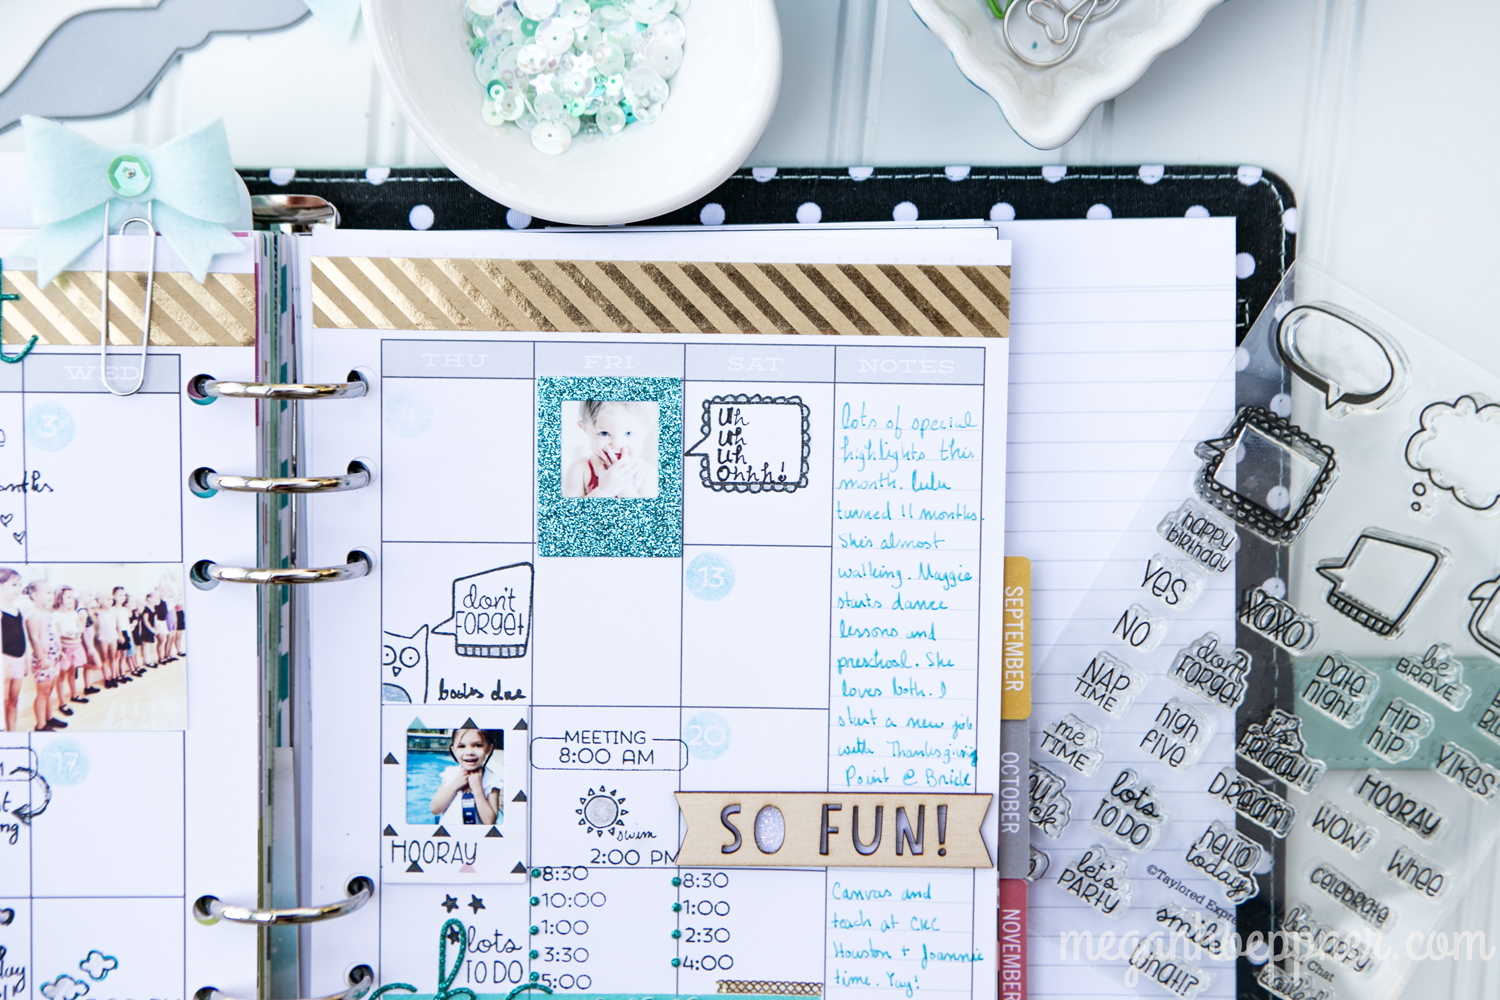 WED
3
17
THU
FRI
SAT
NOTES
4
Uh
Uh
Uh
Ohhh!
don't
FORGET
books due
13
HOORAY
MEETING
8:00 AM
swim
2:00 PM
20
lots
TO DO
8:30
10:00
1:00
3:30
5:00
8:30
1:00
2:30
4:00
lots of special
highlights this
month. Lulu
turned 11 months.
She's almost
walking. Maggie
starts dance
lessons and
preschool. She
loves both. I
start a new job
with Thanksgiving
Point @ Brick
SO FUN!
Canvas and
teach at CKC
Houston + Joannie
time. Yay!
SEPTEMBER
OCTOBER
NOVEMBER
happy
birthday
YES
NO
XOXO
NAP
TIME
don't
FORGET
DATE
night
be
BRAVE
me
TIME
high
five
it's
FRIDAY!!
HIP
HIP
YIKES
lots
TO DO
DREAM
HOORAY
WOW!
hello
today
WHEE
let's
PARTY
©Taylored Expre
CELEBRATE
smile
be happy
WHAT!?
Chat